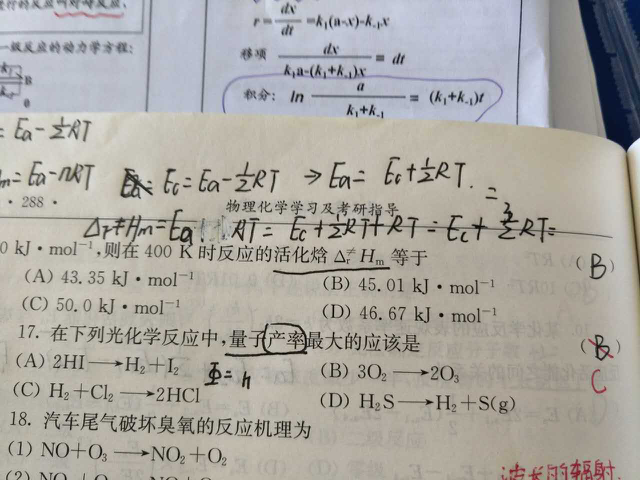 r = dx/dt = k₁(a-x)-k₋₁x
一级反应的动力学方程:
移项 dx/(k₁a-(k₁+k₋₁)x) = dt
B
积分: ln a/(k₁+k₋₁) = (k₁+k₋₁)t
= Ea-½RT
= Ea-nRT Ec = Ea-½RT → Ea = Ec+½RT. =
· 288 · 物理化学学习及考研指导
Δr≠Hm = Ea RT = Ec+½RT+RT = Ec+ RT=
0 kJ·mol⁻¹,则在 400 K 时反应的活化焓 Δr≠Hm 等于 (B)
(A) 43.35 kJ·mol⁻¹ (B) 45.01 kJ·mol⁻¹
(C) 50.0 kJ·mol⁻¹ (D) 46.67 kJ·mol⁻¹
17. 在下列光化学反应中,量子产率最大的应该是 (B)
(A) 2HI⟶H₂+I₂ Φ=n (B) 3O₂⟶2O₃ C
(C) H₂+Cl₂⟶2HCl (D) H₂S⟶H₂+S(g)
18. 汽车尾气破坏臭氧的反应机理为
(1) NO+O₃⟶NO₂+O₂
波长的辐射.